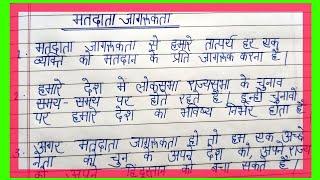 मतदाता जागरूकता
1. मतदाता जागरूकता से हमारे तात्पर्य हर एक
व्यक्ति को मतदान के प्रति जागरूक करना है।
2. हमारे देश में लोकसभा राज्यसभा के चुनाव
समय-समय पर होते रहते हैं। इन्हीं चुनावों
पर हमारे देश का भविष्य निर्भर होता है
3. अगर मतदाता जागरूकता हो तो हम एक अच्छे
नेता को चुन के अपने देश को, अपने राज्य
को अपने हिंदुस्तान को बना सकते हैं।